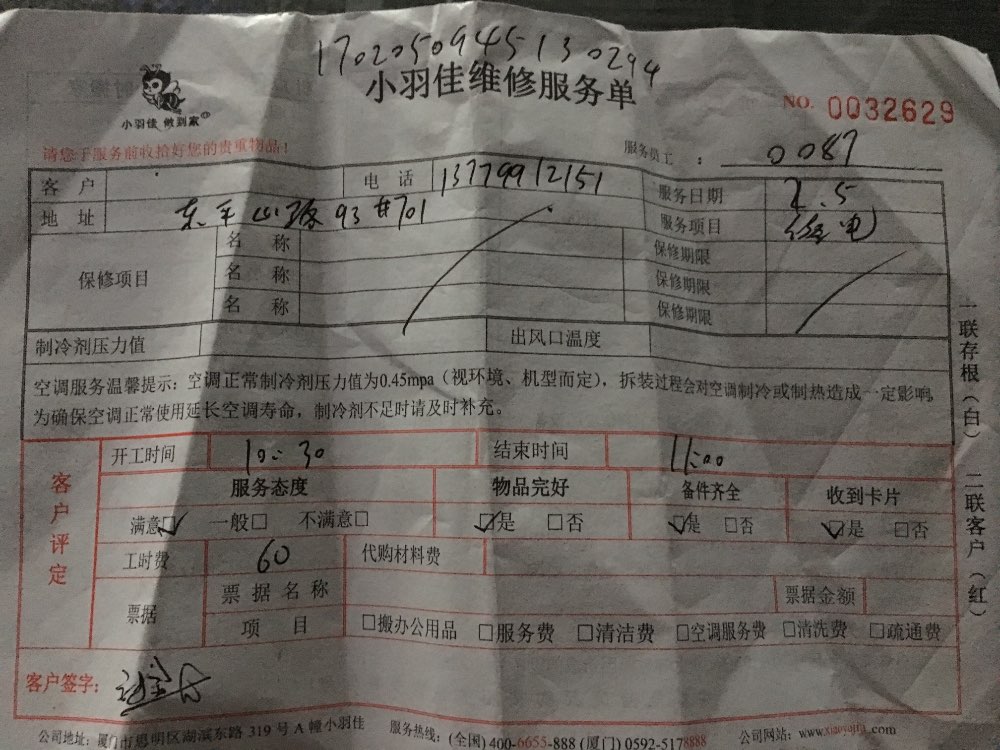 1702050945130294
小羽佳维修服务单
小羽佳 做到家
NO. 0032629
请您于服务前收拾好您的贵重物品！
服务员工： 0087
客户 电话 13779912151 服务日期 2.5
地址 东平山路93#701 服务项目 电
保修项目 名称 保修期限
名称 保修期限
名称 保修期限
制冷剂压力值 出风口温度
空调服务温馨提示：空调正常制冷剂压力值为0.45mpa（视环境、机型而定），拆装过程会对空调制冷或制热造成一定影响，
为确保空调正常使用延长空调寿命，制冷剂不足时请及时补充。
客户评定
开工时间 10:30 结束时间 11:00
服务态度 物品完好 备件齐全 收到卡片
满意☑ 一般□ 不满意□ ☑是 □否 ☑是 □否 ☑是 □否
工时费 60 代购材料费
票据 票据名称 票据金额
项目 □搬办公用品 □服务费 □清洁费 □空调服务费 □清洗费 □疏通费
客户签字：
公司地址：厦门市思明区湖滨东路 319 号 A 幢小羽佳 服务热线：(全国) 400-6655-888 (厦门) 0592-5178888 公司网站：www.xiaoyujia.com
一联存根（白） 二联客户（红）